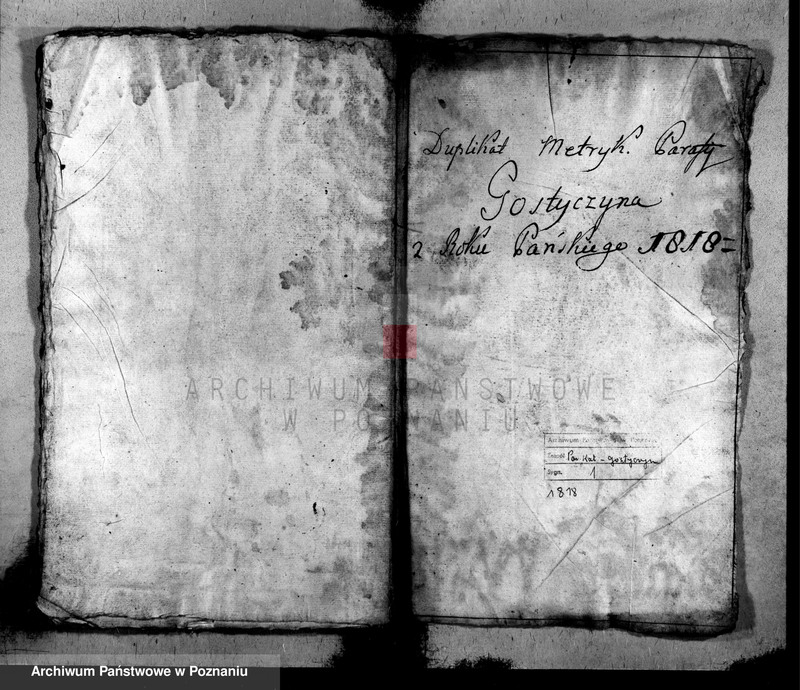 Duplikat Metryk. Parafy
Gostyczyna
z Roku Pańskiego 1818=
ARCHIWUM PAŃSTWOWE
W POZNANIU
Archiwum Państwowe w Poznaniu
Zespół Par. Kat. - Gostyczyn
Sygn. 1
1818
Archiwum Państwowe w Poznaniu